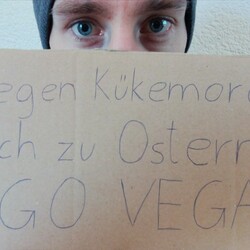 egen Kükemord
ch zu Ostern
GO VEGA